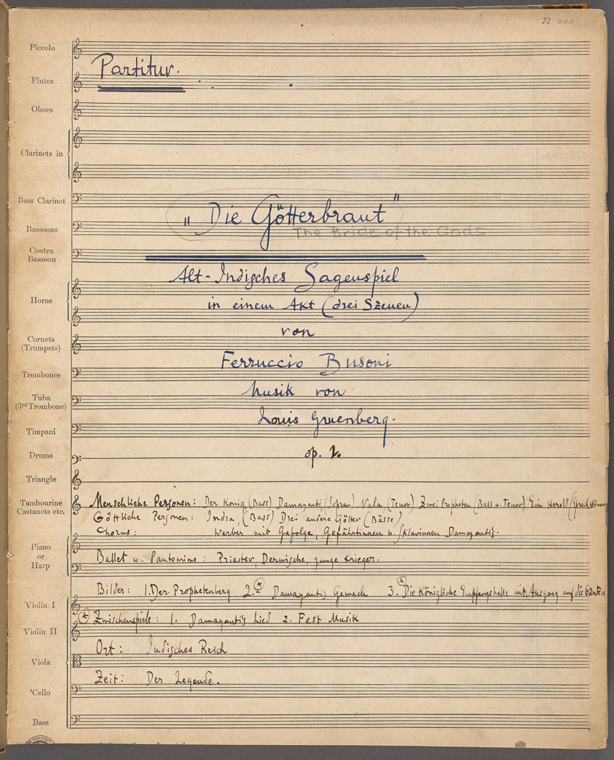 Piccolo
Partitur.
Flutes
Oboes
Clarinets in
Bass Clarinet
„Die Götterbraut"
Bassoons
The Bride of the Gods
Contra
Bassoon
Alt-Indisches Sagenspiel
Horns
in einem Akt (drei Szenen)
von
Cornets
(Trumpets)
Ferruccio Busoni
Trombones
Musik von
Tuba
(3rd Trombone)
Louis Gruenberg.
Timpani
op. 2.
Drums
Triangle
Tambourine
Castanets etc.
Menschliche Personen: Der König (Bass) Damayanti (Sopran) Nala (Tenor) Zwei Propheten (Bass u. Tenor) Ein Herold
Göttliche Personen: Indra, (Bass) Drei andere Götter (Bässe)
Chorus: Werber mit Gefolge, Gefährtinnen u. Sklavinnen Damayanti's.
Piano
or
Harp
Ballet u. Pantomime: Priester, Derwische, junge Krieger.
Bilder: 1. Der Prophetenberg 2. Damayanti's Gemach 3. Die Königliche Empfangshalle mit Ausgang auf die Gärten
Violin I
Zwischenspiele: 1. Damayanti's Lied 2. Fest Musik
Violin II
Ort: Indisches Reich
Viola
Zeit: Der Legende.
'Cello
Bass